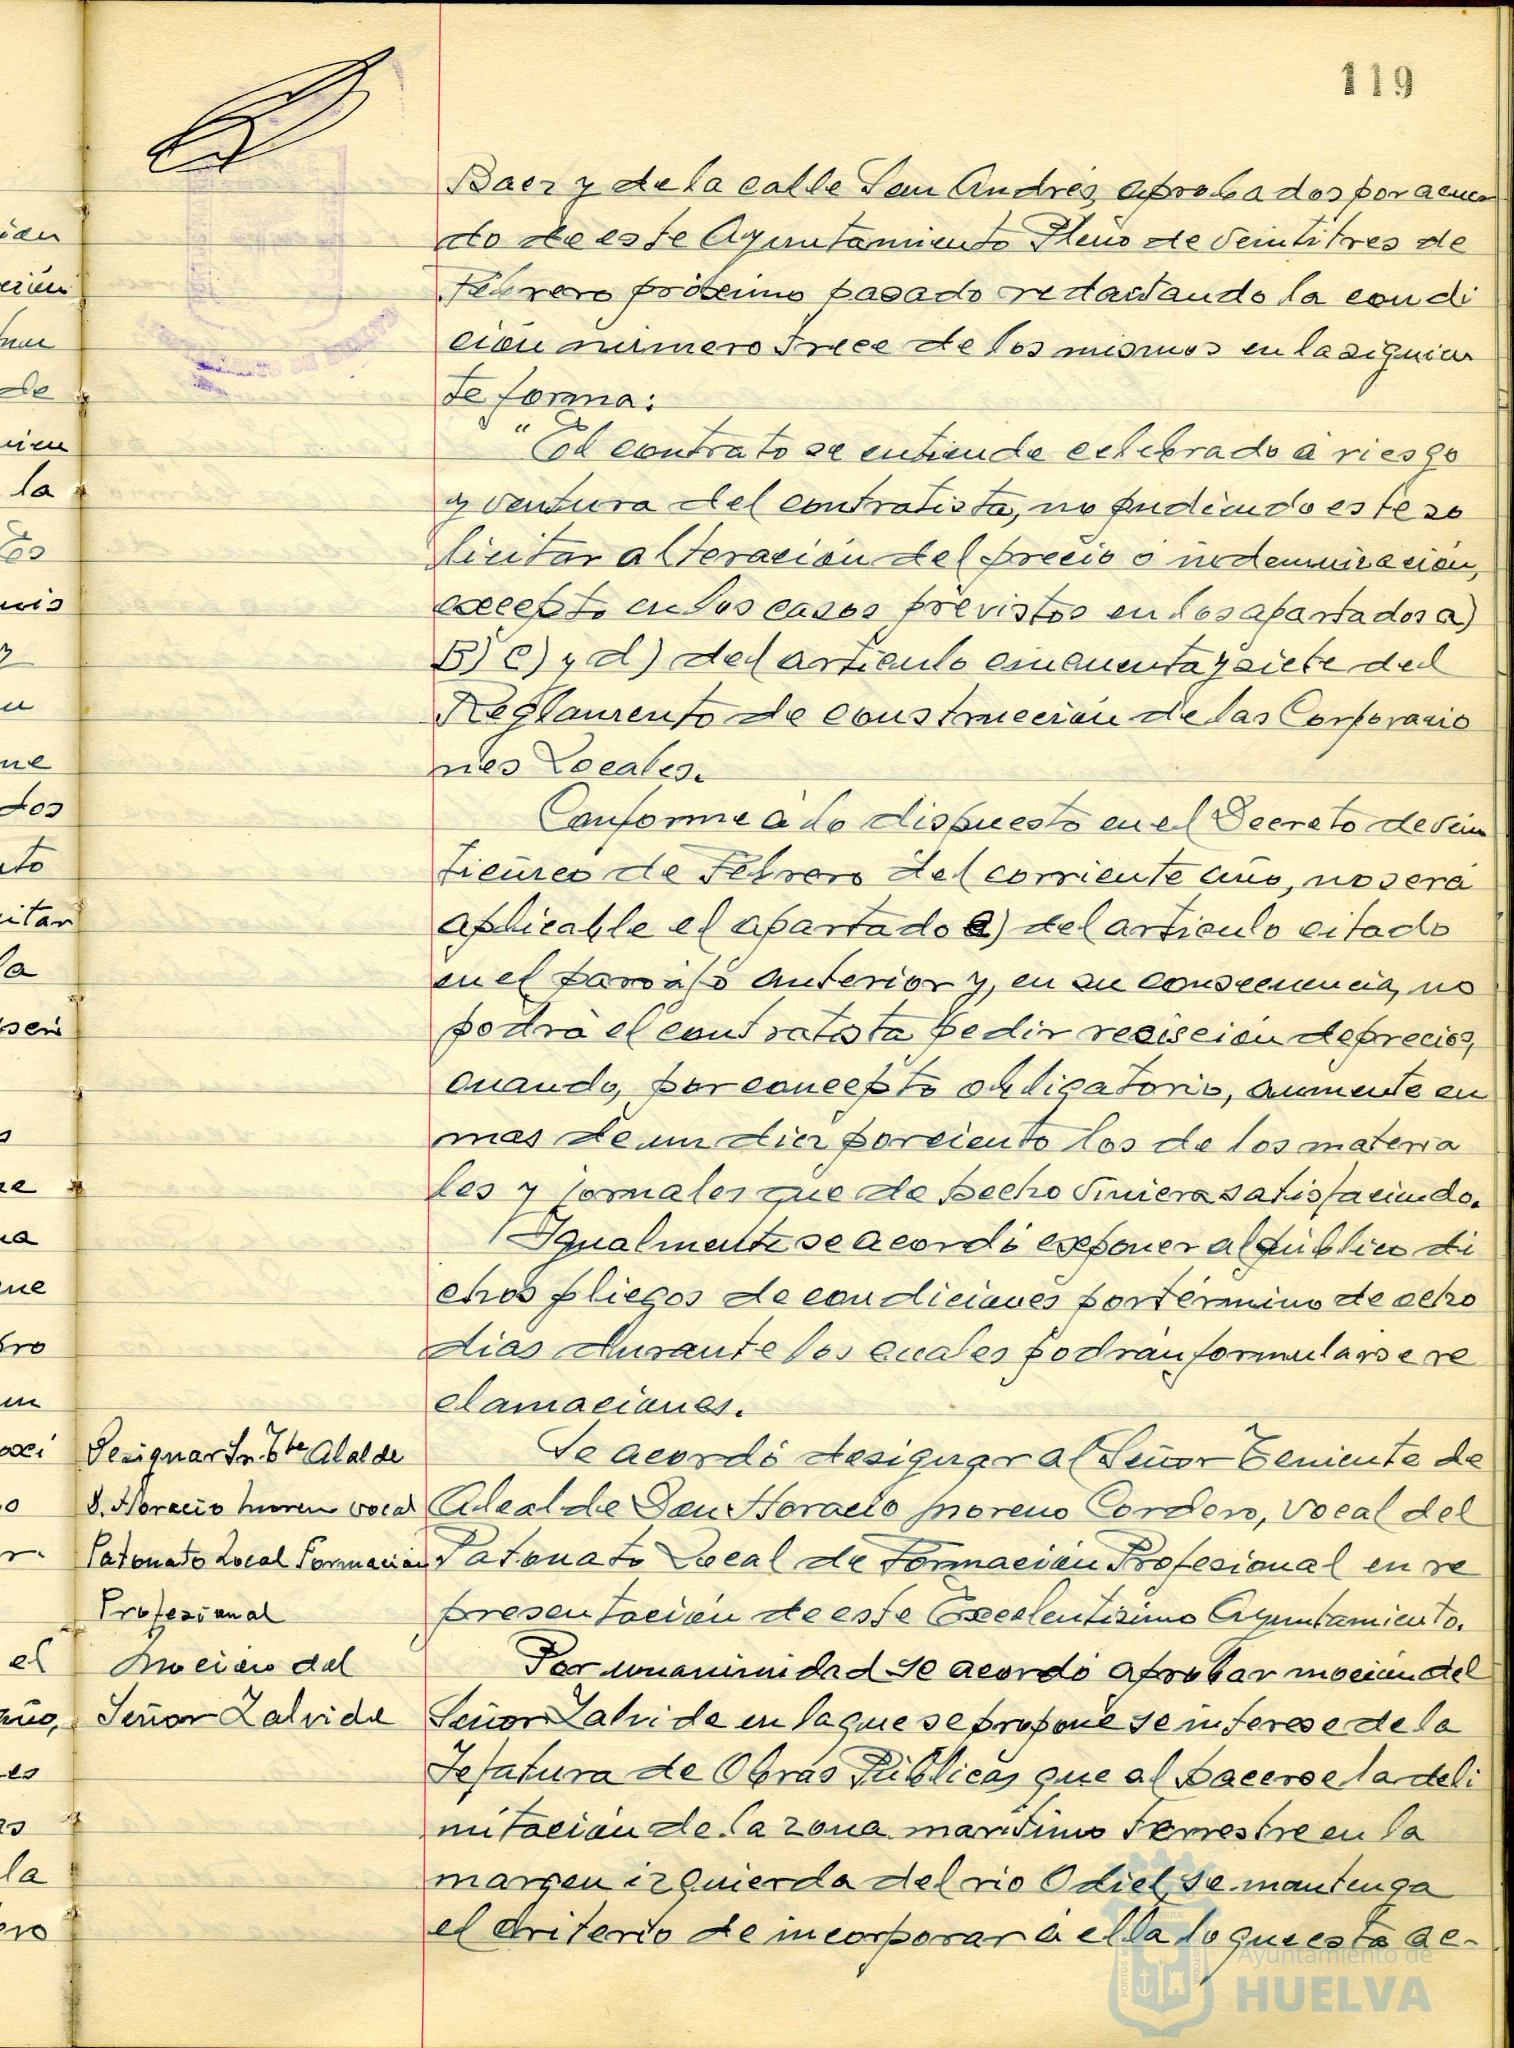 119
Baez y de la calle San Andrés, aprobados por acuer
do de este Ayuntamiento Pleno de veintitres de
Febrero próximo pasado redactando la condi
ción número trece de los mismos en la siguien
te forma:
"El contrato se entiende celebrado á riesgo
y ventura del contratista, no pudiendo este so
licitar alteración del precio o indemnización,
excepto en los casos previstos en los apartados a)
B) c) y d) del artículo cincuenta y siete del
Reglamento de construcción de las Corporacio
nes Locales.
Conforme á lo dispuesto en el Decreto de vein
ticinco de Febrero del corriente año, no será
aplicable el apartado e) del articulo citado
en el parráfo anterior y, en su consecuencia, no
podrá el contratista pedir reviseión de precios,
cuando, por concepto obligatorio, aumente en
mas de un diez por ciento los de los materia
les y jornales que de hecho viniera satisfaciendo.
Igualmente se acordó exponer al público di
chos pliegos de condiciones por término de ocho
dias durante los cuales podrán formularse re
clamaciones.
Designar Sr. Tte Alalde
D. Horacio Moreno vocal
Patonato Local Formación
Profesional
Se acordó designar al Señor Teniente de
Alcalde Don Horacio Moreno Cordero, vocal del
Patonato Local de Formación Profesional en re
presentación de este Excelentísimo Ayuntamiento.
Moción del
Señor Zalvide
Por unanimidad se acordó aprobar moción del
Señor Zalvide en la que se propone se interese de la
Jefatura de Obras Públicas que al hacerse la deli
mitación de la zona maritimo terrestre en la
margen izquierda del rio Odiel, se mantenga
el criterio de incorporar á ella lo que está ac-
Ayuntamiento de
HUELVA